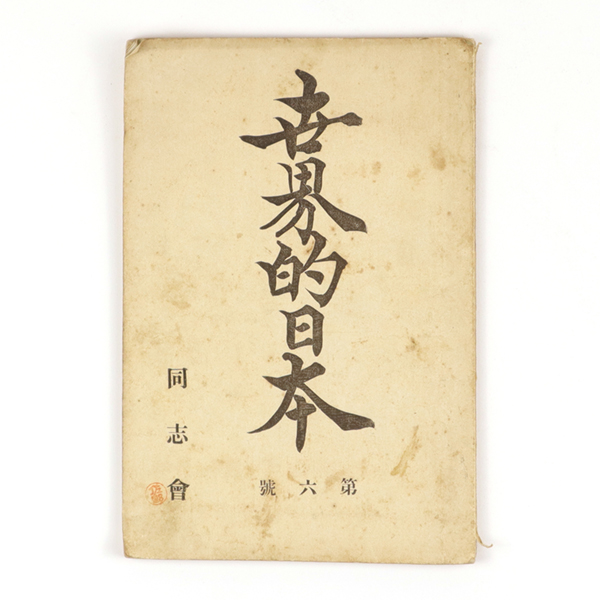 世界的日本
第六號
同志會